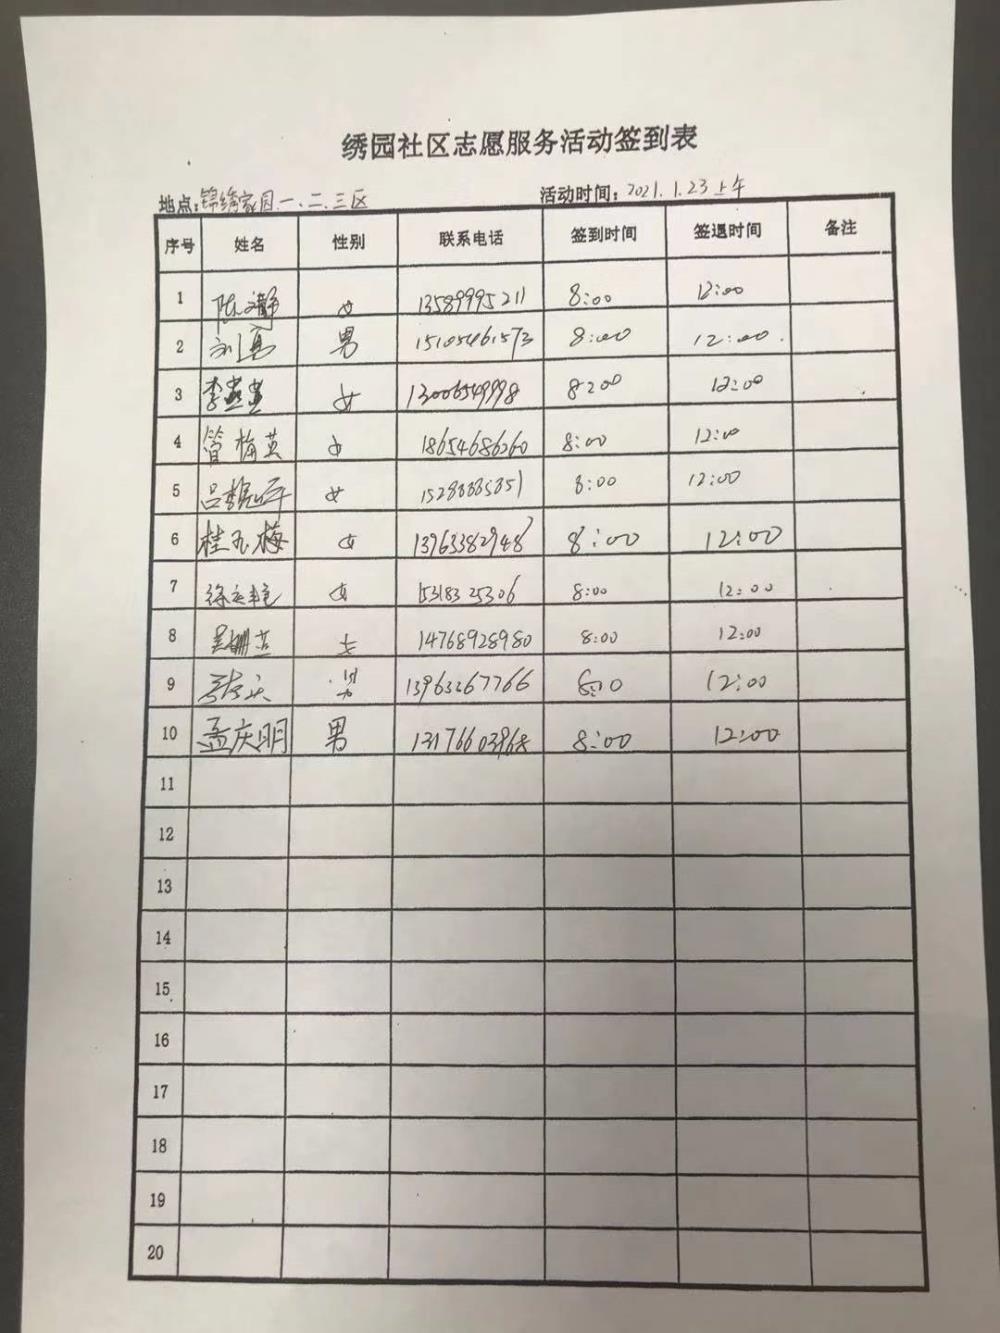 绣园社区志愿服务活动签到表
地点:锦绣家园一.二.三区 活动时间:2021.1.23上午
序号 姓名 性别 联系电话 签到时间 签退时间 备注
1 陈文静 女 13589995211 8:00 12:00
2 刘勇 男 15105461573 8:00 12:00
3 李燕燕 女 13006549998 8:00 12:00
4 管梅英 女 18654686260 8:00 12:00
5 吕 女 8:00 12:00
6 桂玉梅 女 13963382948 8:00 12:00
7 徐 女 15318325306 8:00 12:00
8 女 14768928980 8:00 12:00
9 男 13963267766 12:00
10 孟庆明 男 13176603968 8:00 12:00
11
12
13
14
15
16
17
18
19
20